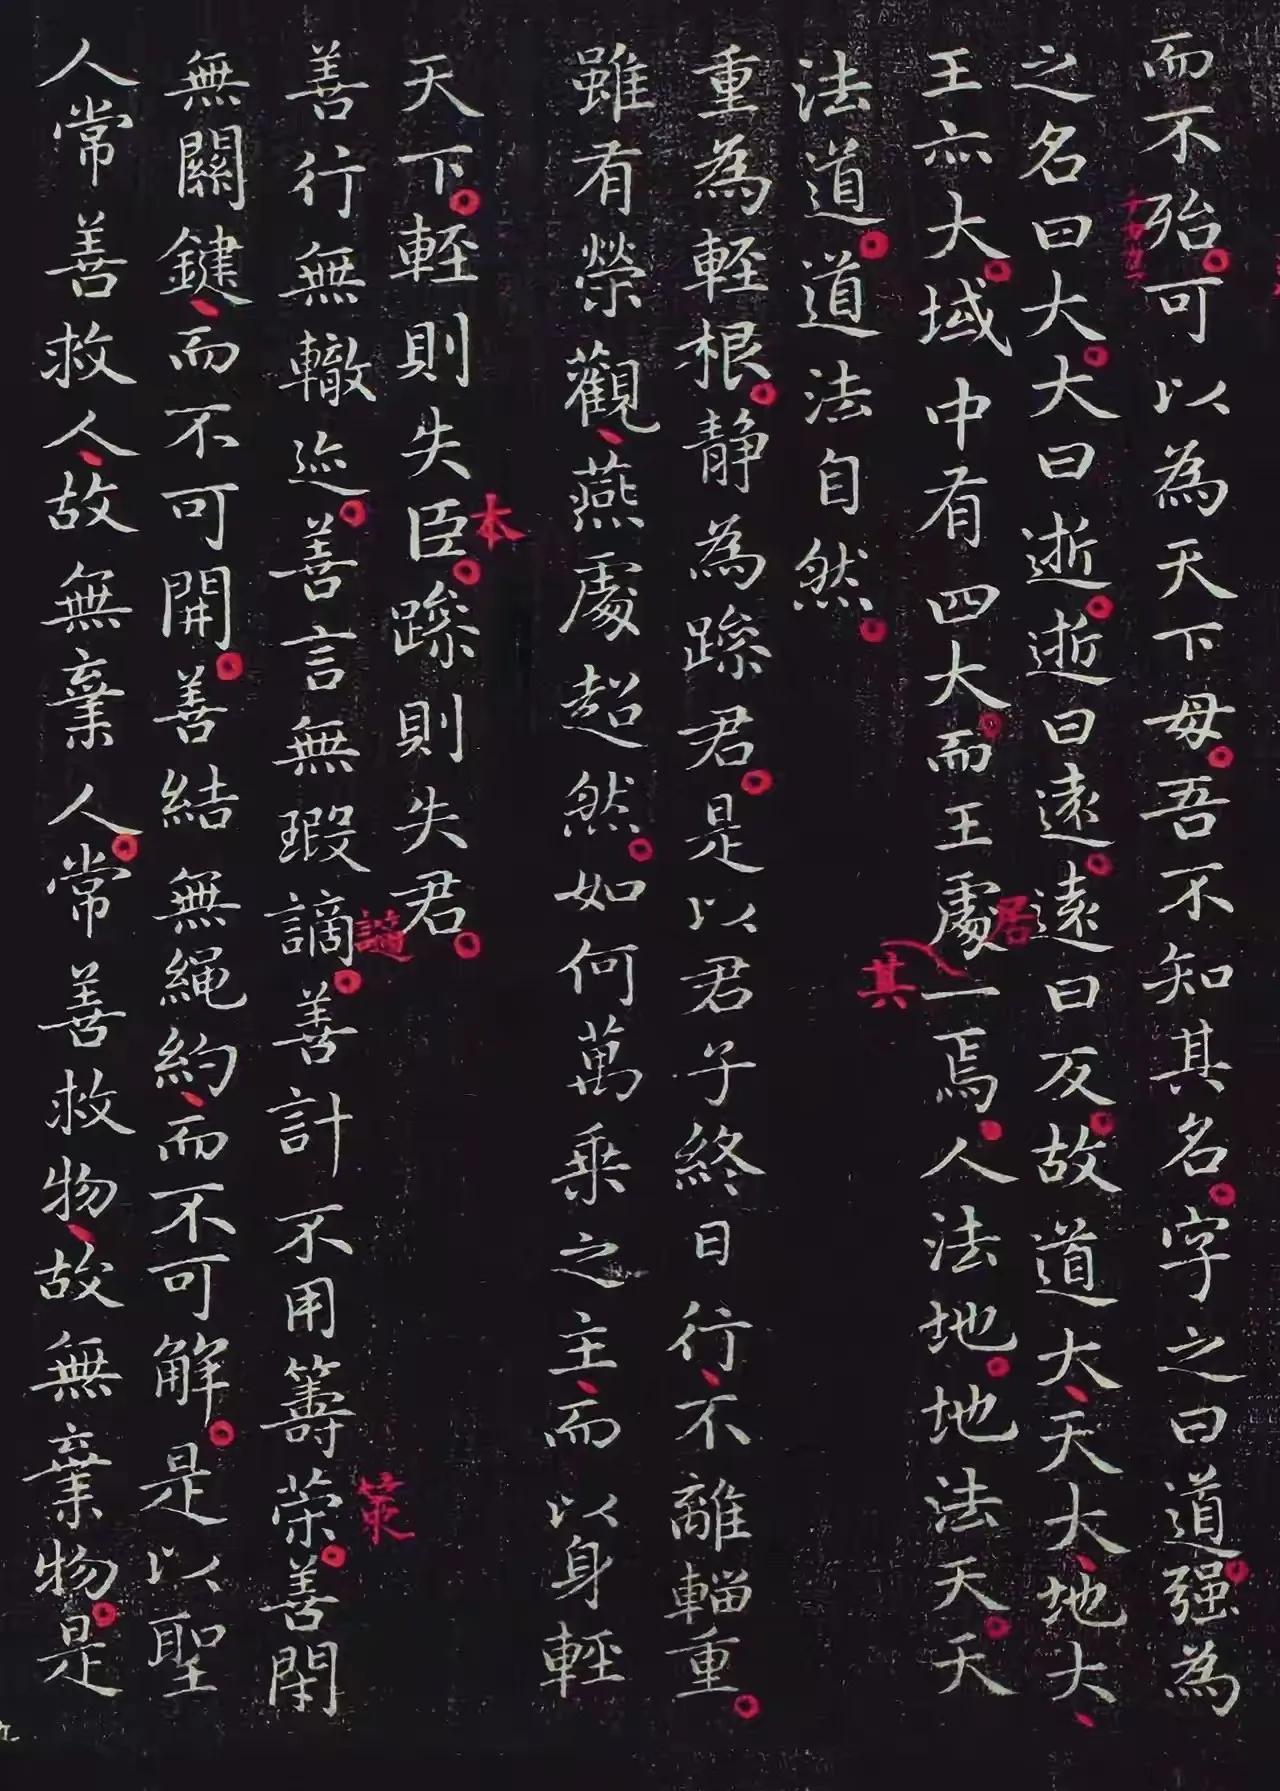 而不殆可以為天下母吾不知其名字之曰道强為
之名曰大大曰逝逝曰遠遠曰反故道大天大地大
王亦大域中有四大而王處一焉人法地地法天天
居
其
法道道法自然
重為輕根静為躁君是以君子終日行不離輜重
雖有榮觀燕處超然如何萬乗之主而以身輕
天下輕則失臣躁則失君
本
善行無轍迹善言無瑕謫善計不用籌策善閇
讁
策
無關鍵而不可開善結無繩約而不可解是以聖
人常善救人故無棄人常善救物故無棄物是